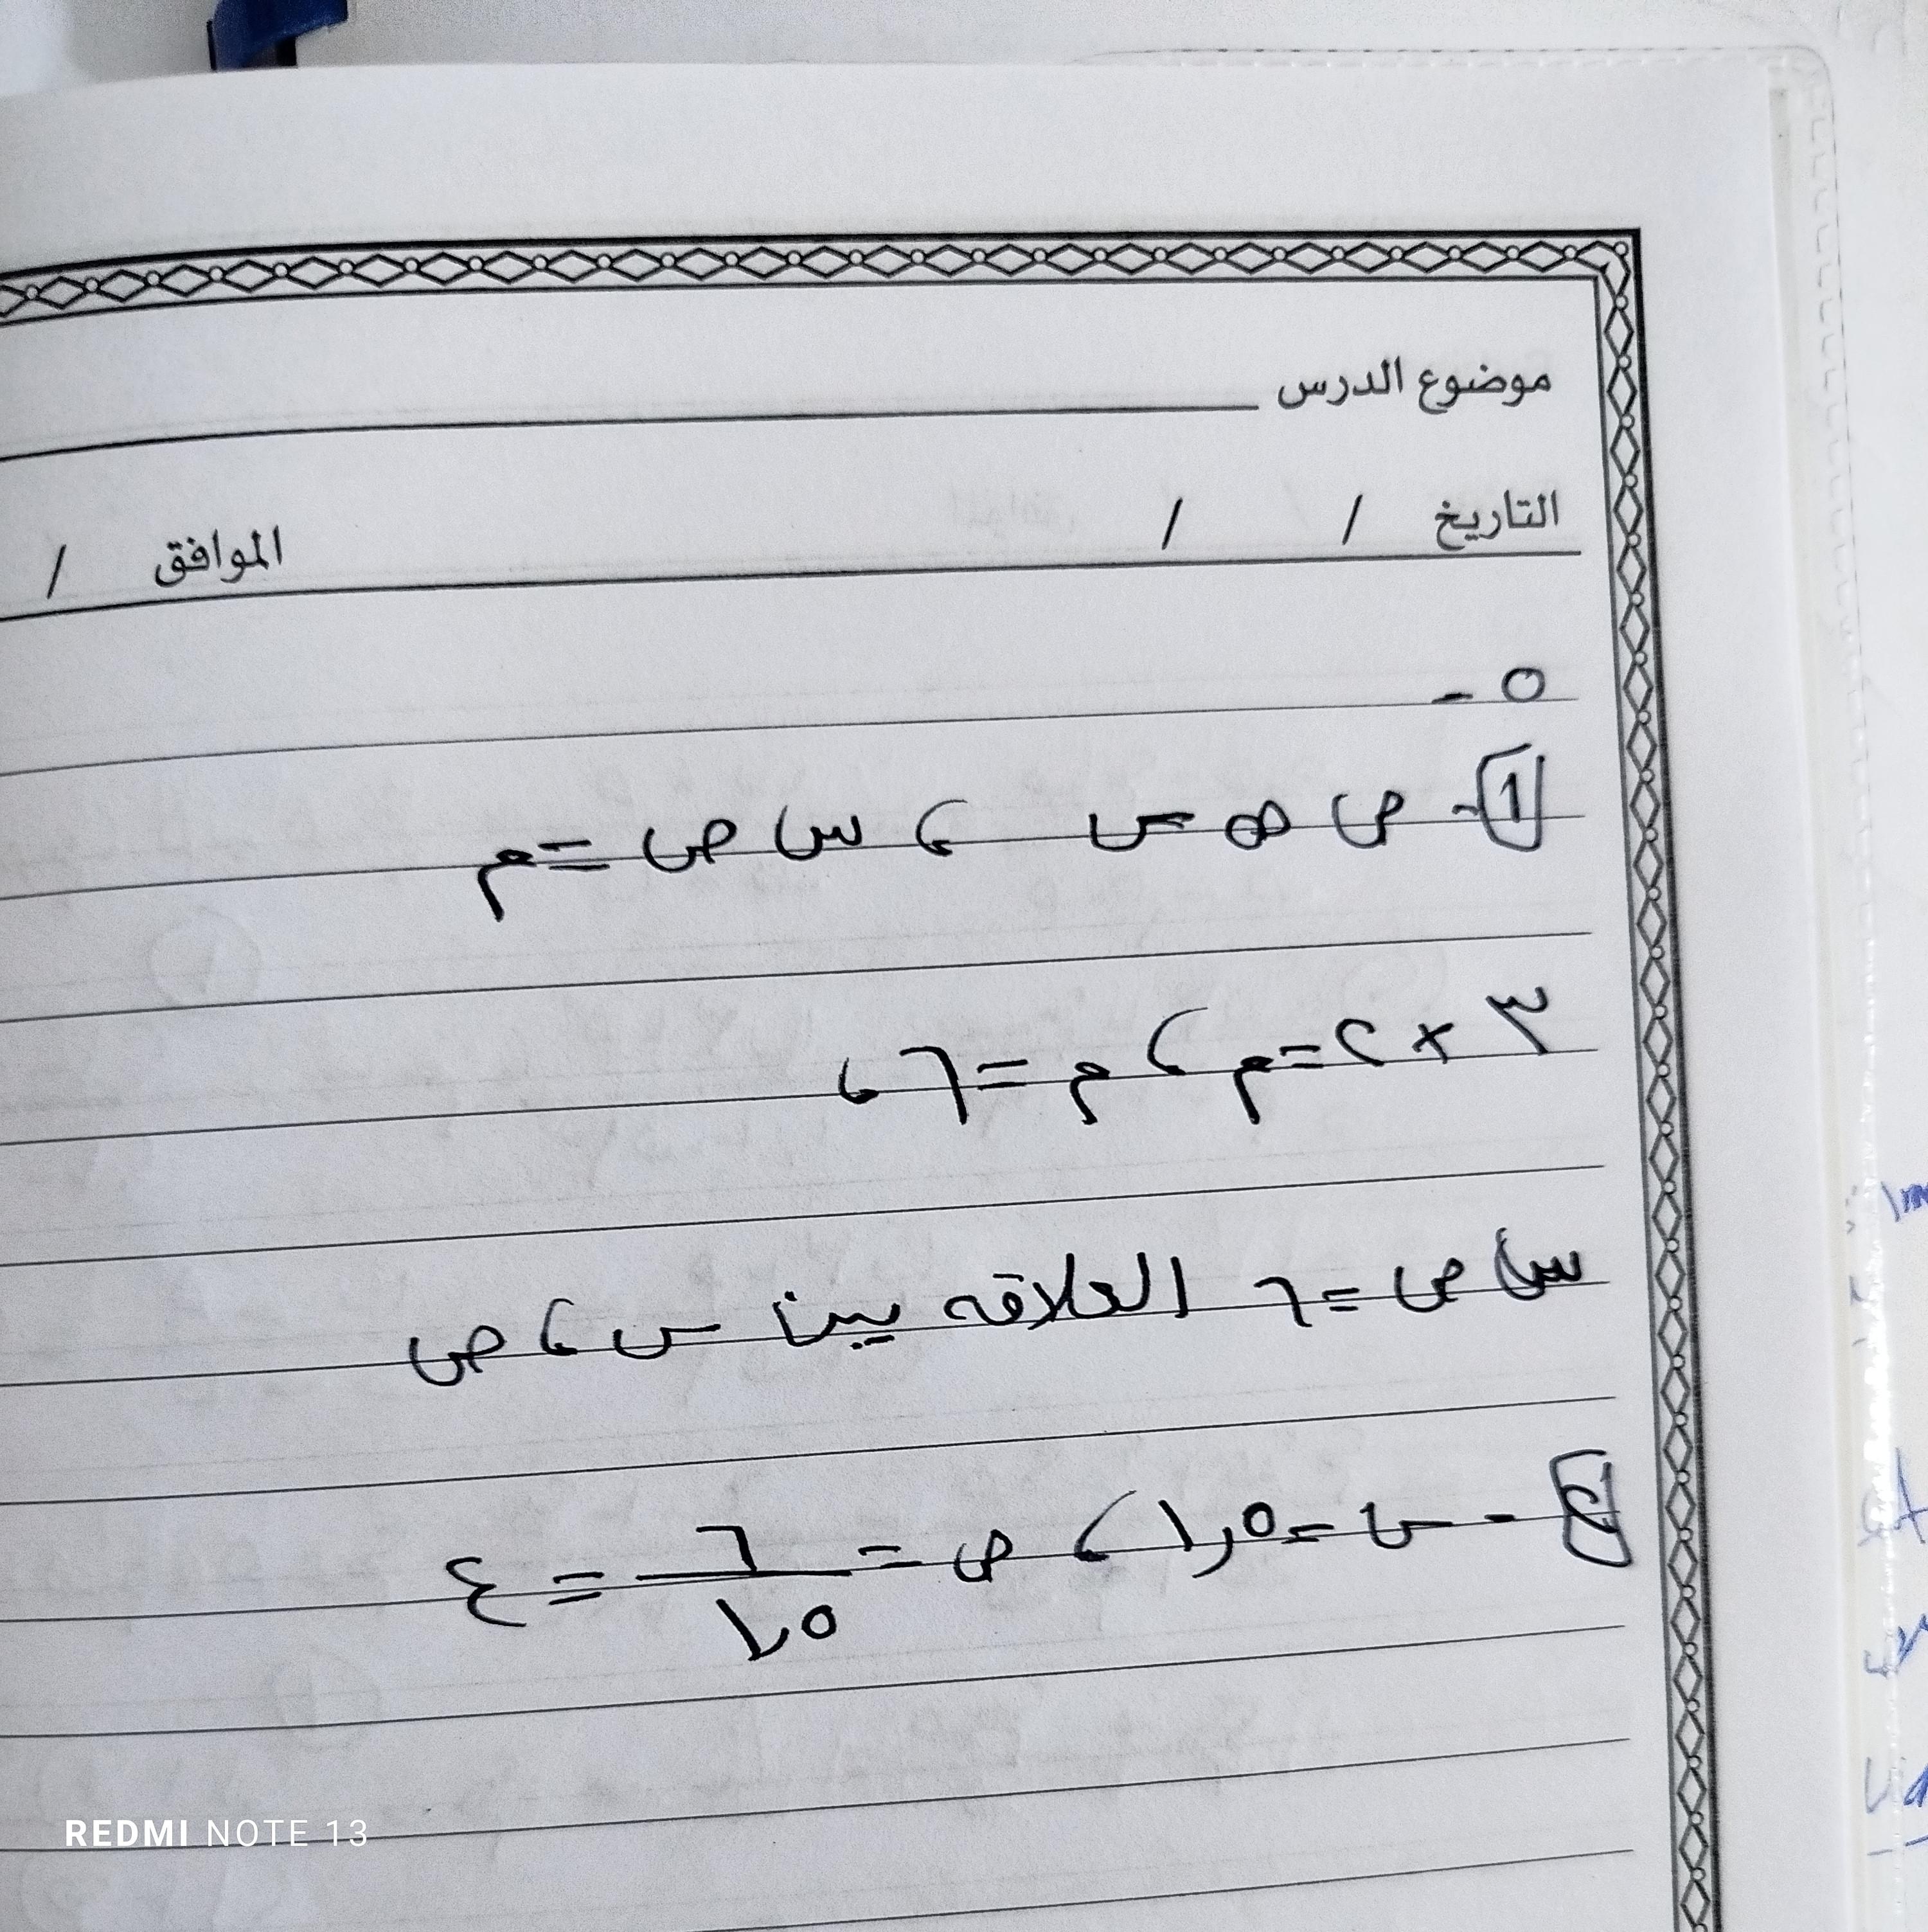 موضوع الدرس
التاريخ / / الموافق /
٥ -
١ - ص ∞ س ، س ص = م
٣ × ٢ = م ، م = ٦ ،
س ص = ٦ العلاقه بين س ، ص
٢ - س = ١,٥ ، ص = ٦/١,٥ = ٤
REDMI NOTE 13